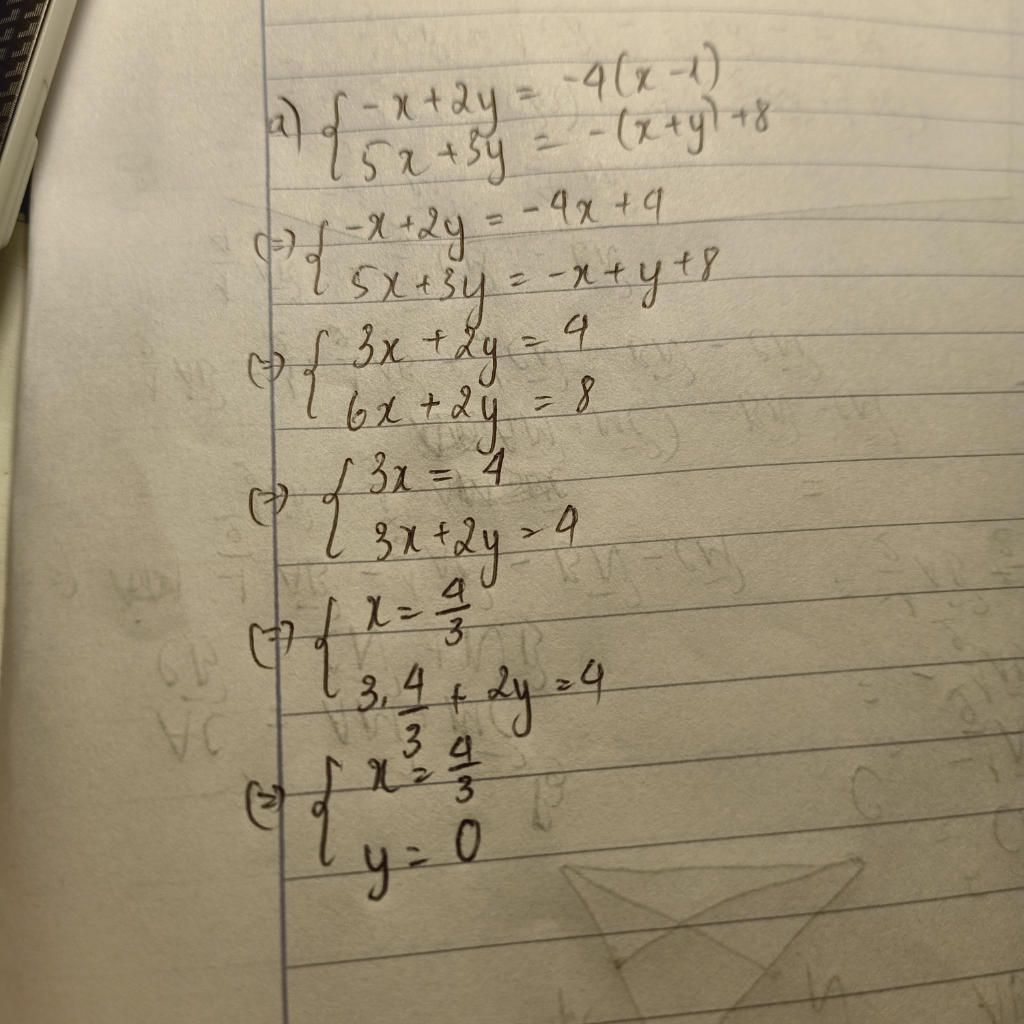 a) { -x + 2y = -4(x - 1)
5x + 3y = -(x + y) + 8
(=) { -x + 2y = -4x + 4
5x + 3y = -x + y + 8
(=) { 3x + 2y = 4
6x + 2y = 8
(=) { 3x = 4
3x + 2y = 4
(=) { x = 4/3
3. 4/3 + 2y = 4
(=) { x = 4/3
y = 0